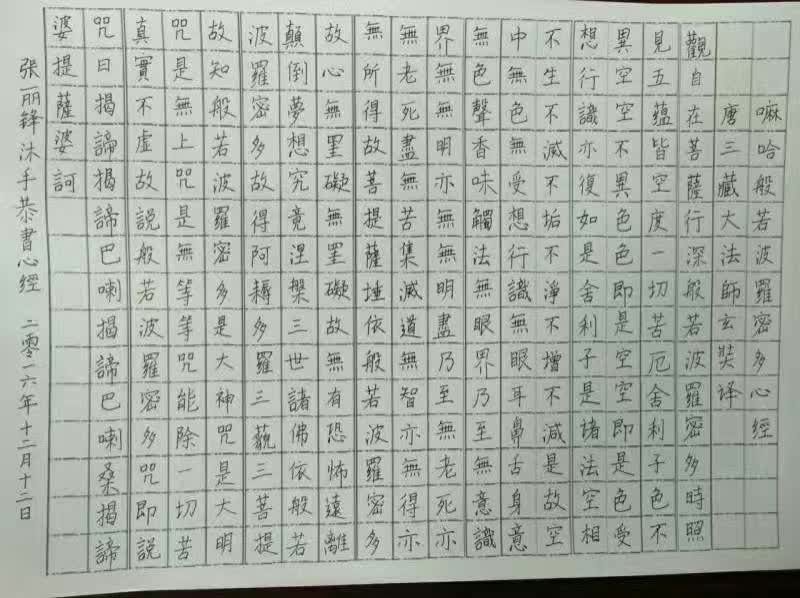 嘛哈般若波羅密多心經
唐三藏大法師玄奘译
觀自在菩薩行深般若波羅密多時照
見五蘊皆空度一切苦厄舍利子色不
異空空不異色色即是空空即是色受
想行識亦復如是舍利子是諸法空相
不生不滅不垢不淨不增不減是故空
中無色無受想行識無眼耳鼻舌身意
無色聲香味觸法無眼界乃至無意識
界無無明亦無無明盡乃至無老死亦
無老死盡無苦集滅道無智亦無得亦
無所得故菩提薩埵依般若波羅密多
故心無罣礙無罣礙故無有恐怖遠離
顛倒夢想究竟涅槃三世諸佛依般若
波羅密多故得阿耨多羅三藐三菩提
故知般若波羅密多是大神咒是大明
咒是無上咒是無等等咒能除一切苦
真實不虛故說般若波羅密多咒即說
咒曰揭諦揭諦巴喇揭諦巴喇桑揭諦
婆提薩婆訶
张丽锋沐手恭書心經 二零一六年十二月十二日